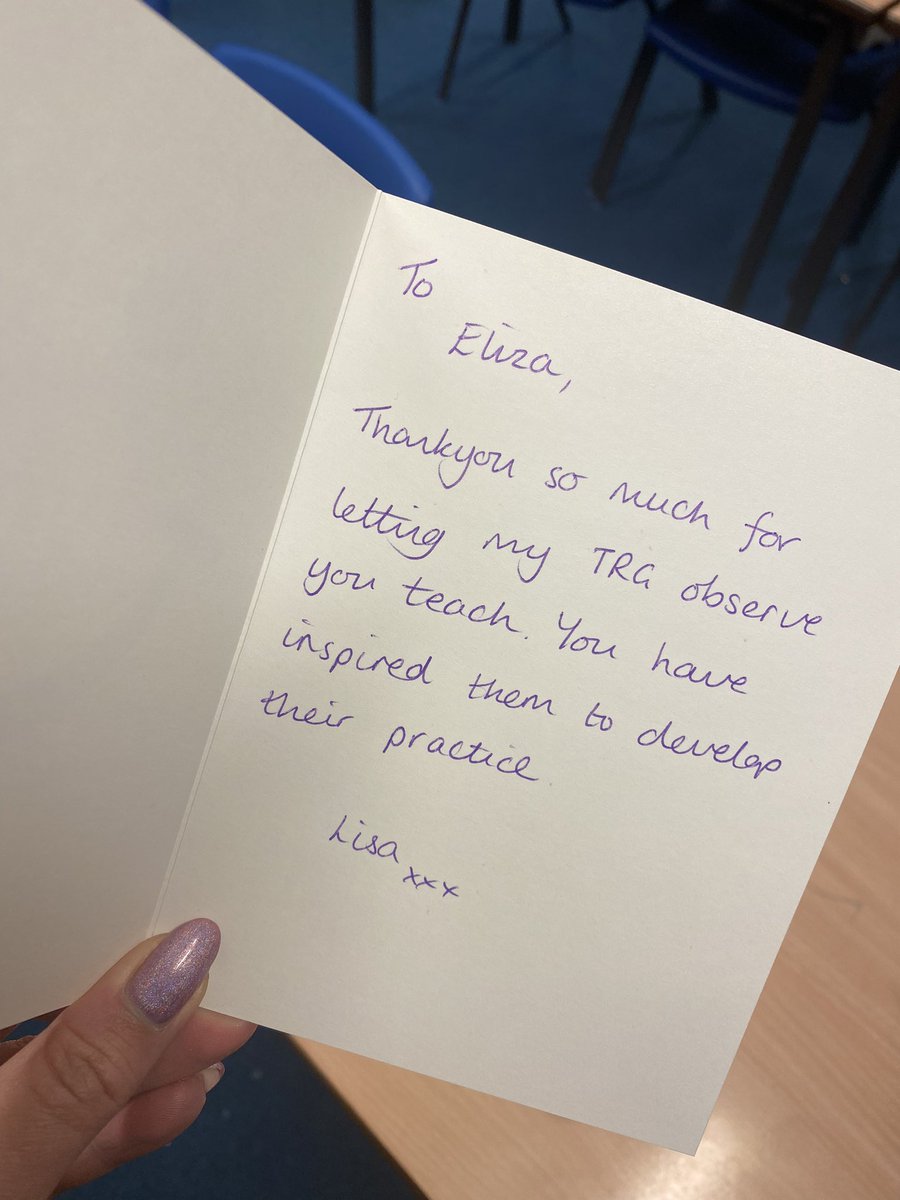 To
Eliza,
Thankyou so much for
letting my TRG observe
you teach. You have
inspired them to develop
their practice.
Lisa xxx